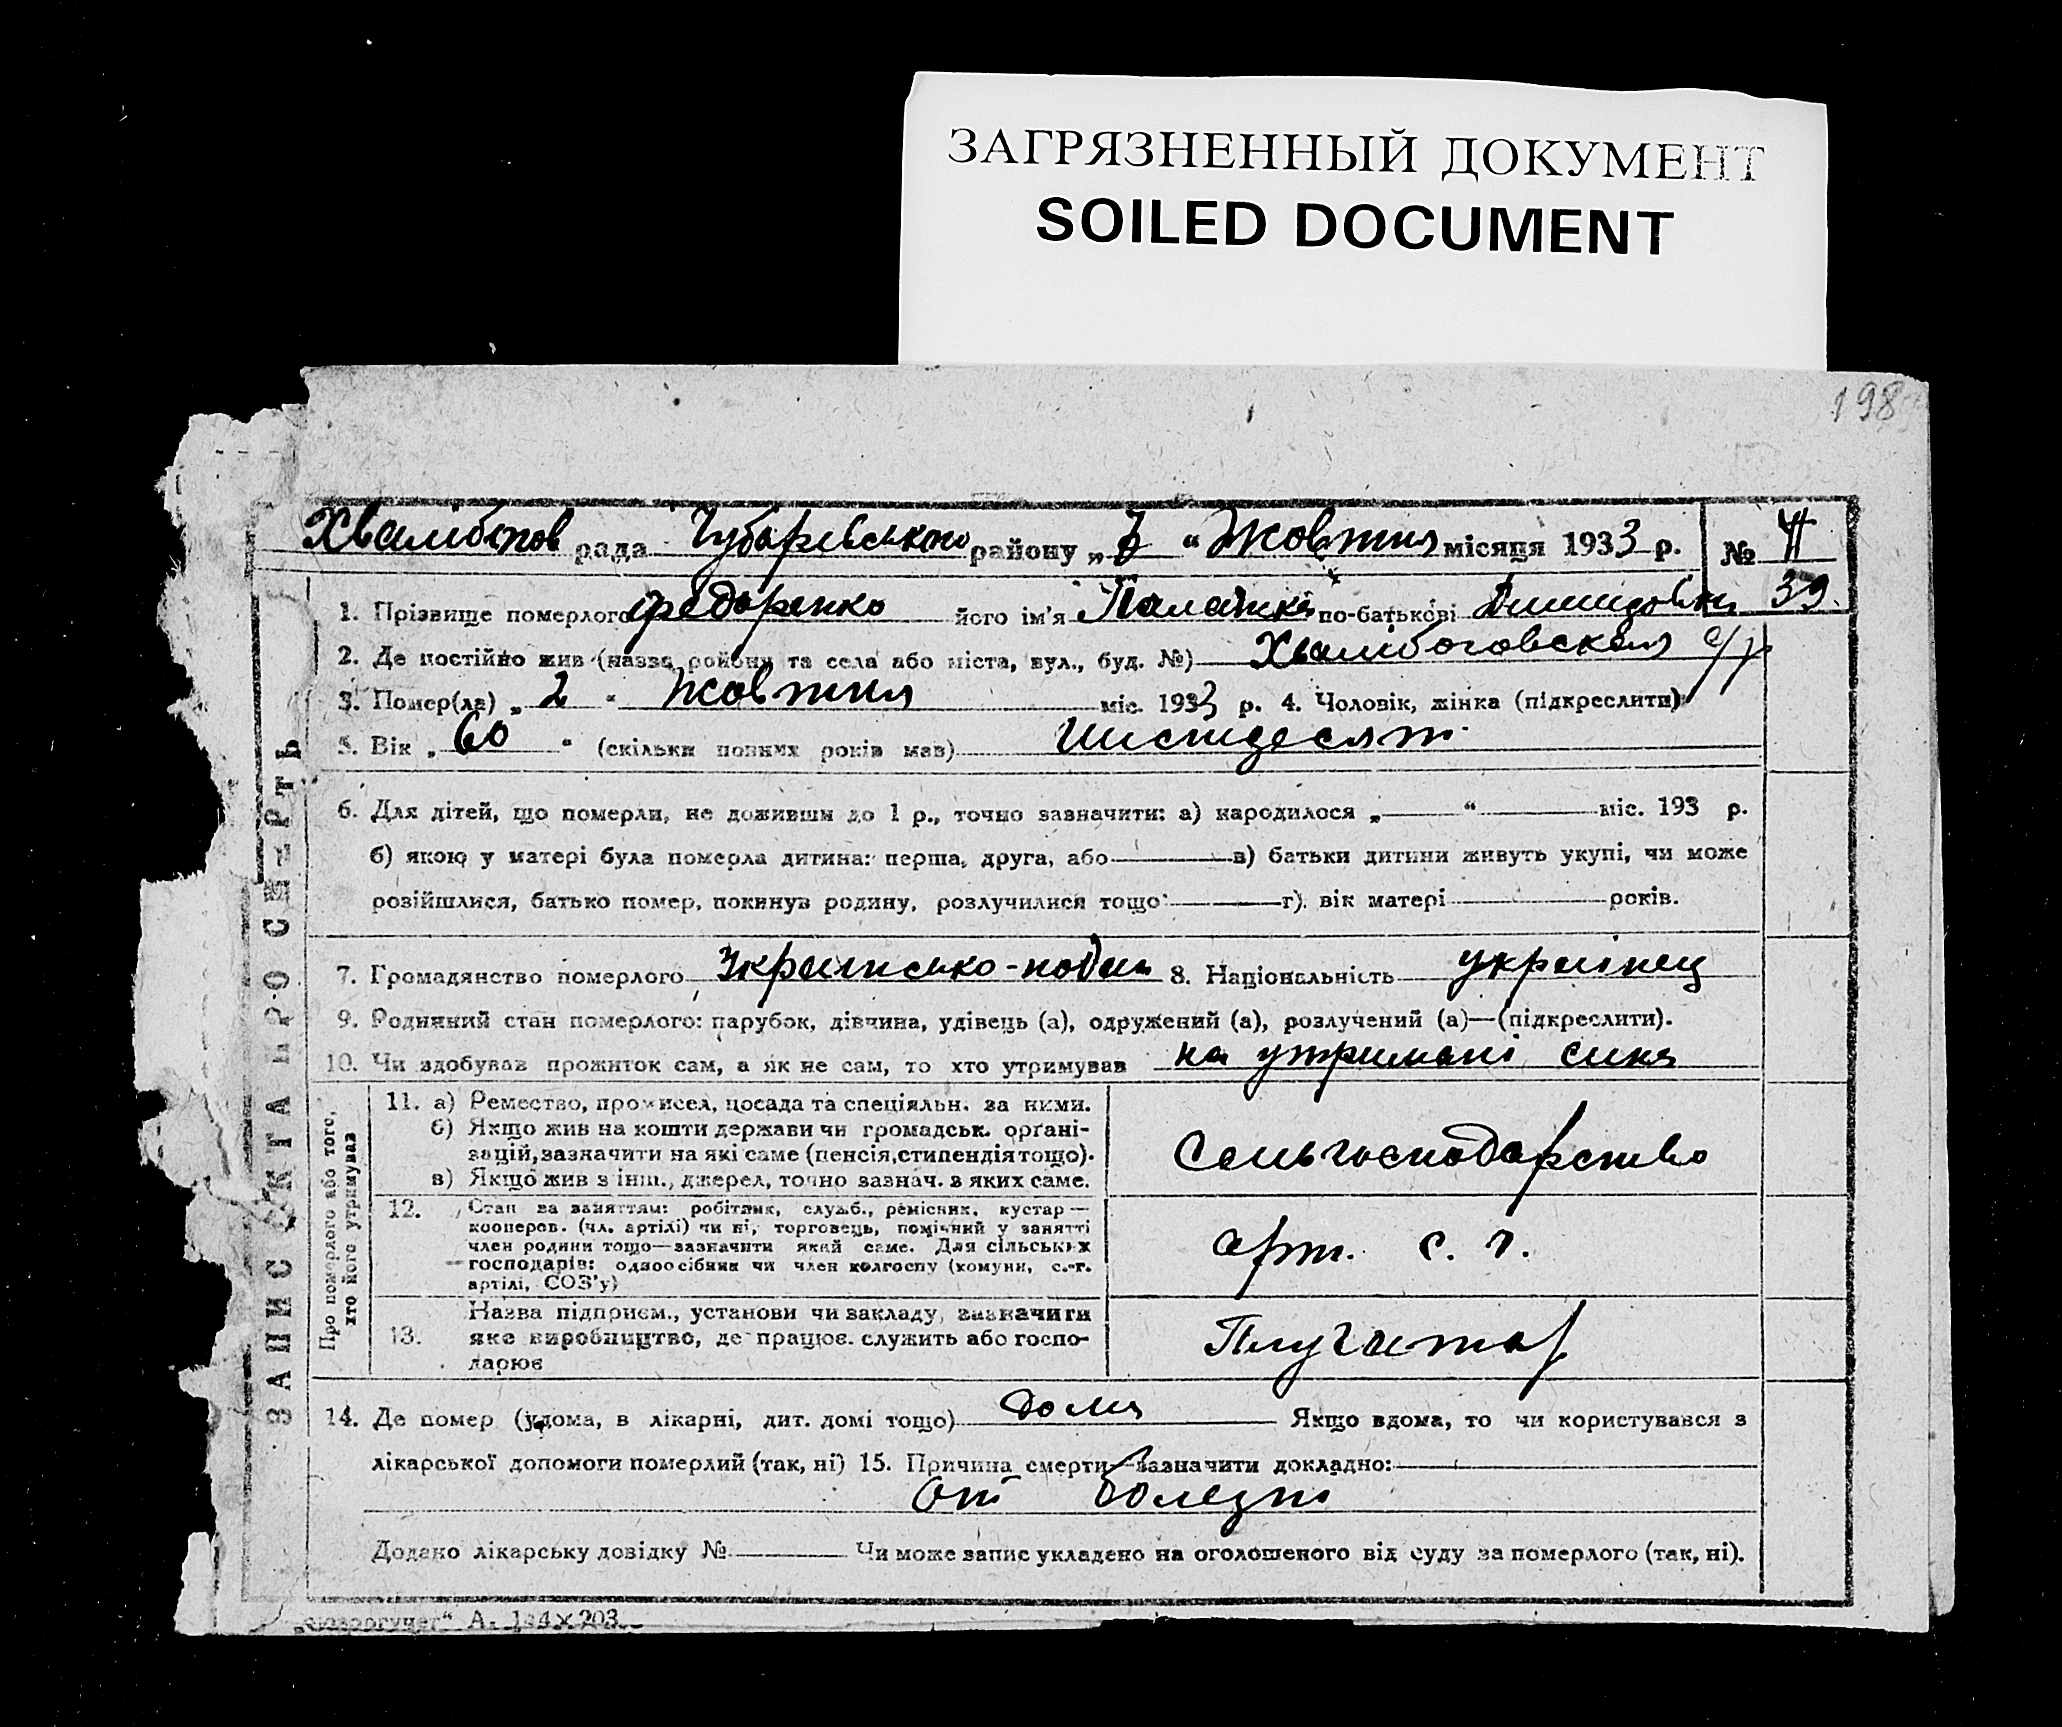 ЗАГРЯЗНЕННЫЙ ДОКУМЕНТ
SOILED DOCUMENT
198
рада Чубарівського району „ “ Жовтня місяця 1933 р. №
39
1. Прізвище померлого Федоренко його ім'я по-батькові
2. Де постійно жив (назва району та села або міста, вул., буд. №) Хвалібоговская с/р
3. Помер(ла) „ 2 “ Жовтня міс. 1933 р. 4. Чоловік, жінка (підкреслити)
5. Вік „ 60 “ (скільки повних років мав) Шистдесят
6. Для дітей, що померли, не доживши до 1 р., точно зазначити: а) народилося „ “ міс. 193 р.
б) якою у матері була померла дитина: перша, друга, або в) батьки дитини живуть укупі, чи може
розійшлися, батько помер, покинув родину, розлучилися тощо г) вік матері років.
7. Громадянство померлого 8. Національність українец
9. Родинний стан померлого: парубок, дівчина, удівець (а), одружений (а), розлучений (а)—(підкреслити).
10. Чи здобував прожиток сам, а як не сам, то хто утримував на утримані сина
ЗАПИСКА ПРО СМЕРТЬ
Про померлого або того, хто його утримував
11. а) Ремество, промисел, посада та спеціяльн. за ними.
б) Якщо жив на кошти держави чи громадськ. орґані-
зацій, зазначити на які саме (пенсія, стипендія тощо).
в) Якщо жив з інш., джерел, точно зазнач. з яких саме.
Сельгосподарство
12. Стан за заняттям: робітник, служб., ремісник, кустар—
кооперов. (чл. артілі) чи ні, торговець, помічний у занятті
член родини тощо—зазначити який саме. Для сільських
господарів: одноосібник чи член колгоспу (комуни, с.-г.
артілі, СОЗ'у)
арт. с. г.
13. Назва підприєм., установи чи закладу, зазначити
яке виробництво, де працює. служить або госпо-
дарює
Плугатар
14. Де помер (удома, в лікарні, дит. домі тощо) дома Якщо вдома, то чи користувався з
лікарської допомоги померлий (так, ні) 15. Причина смерти—зазначити докладно:
От болезні
Додано лікарську довідку № Чи може запис укладено на оголошеного від суду за померлого (так, ні).